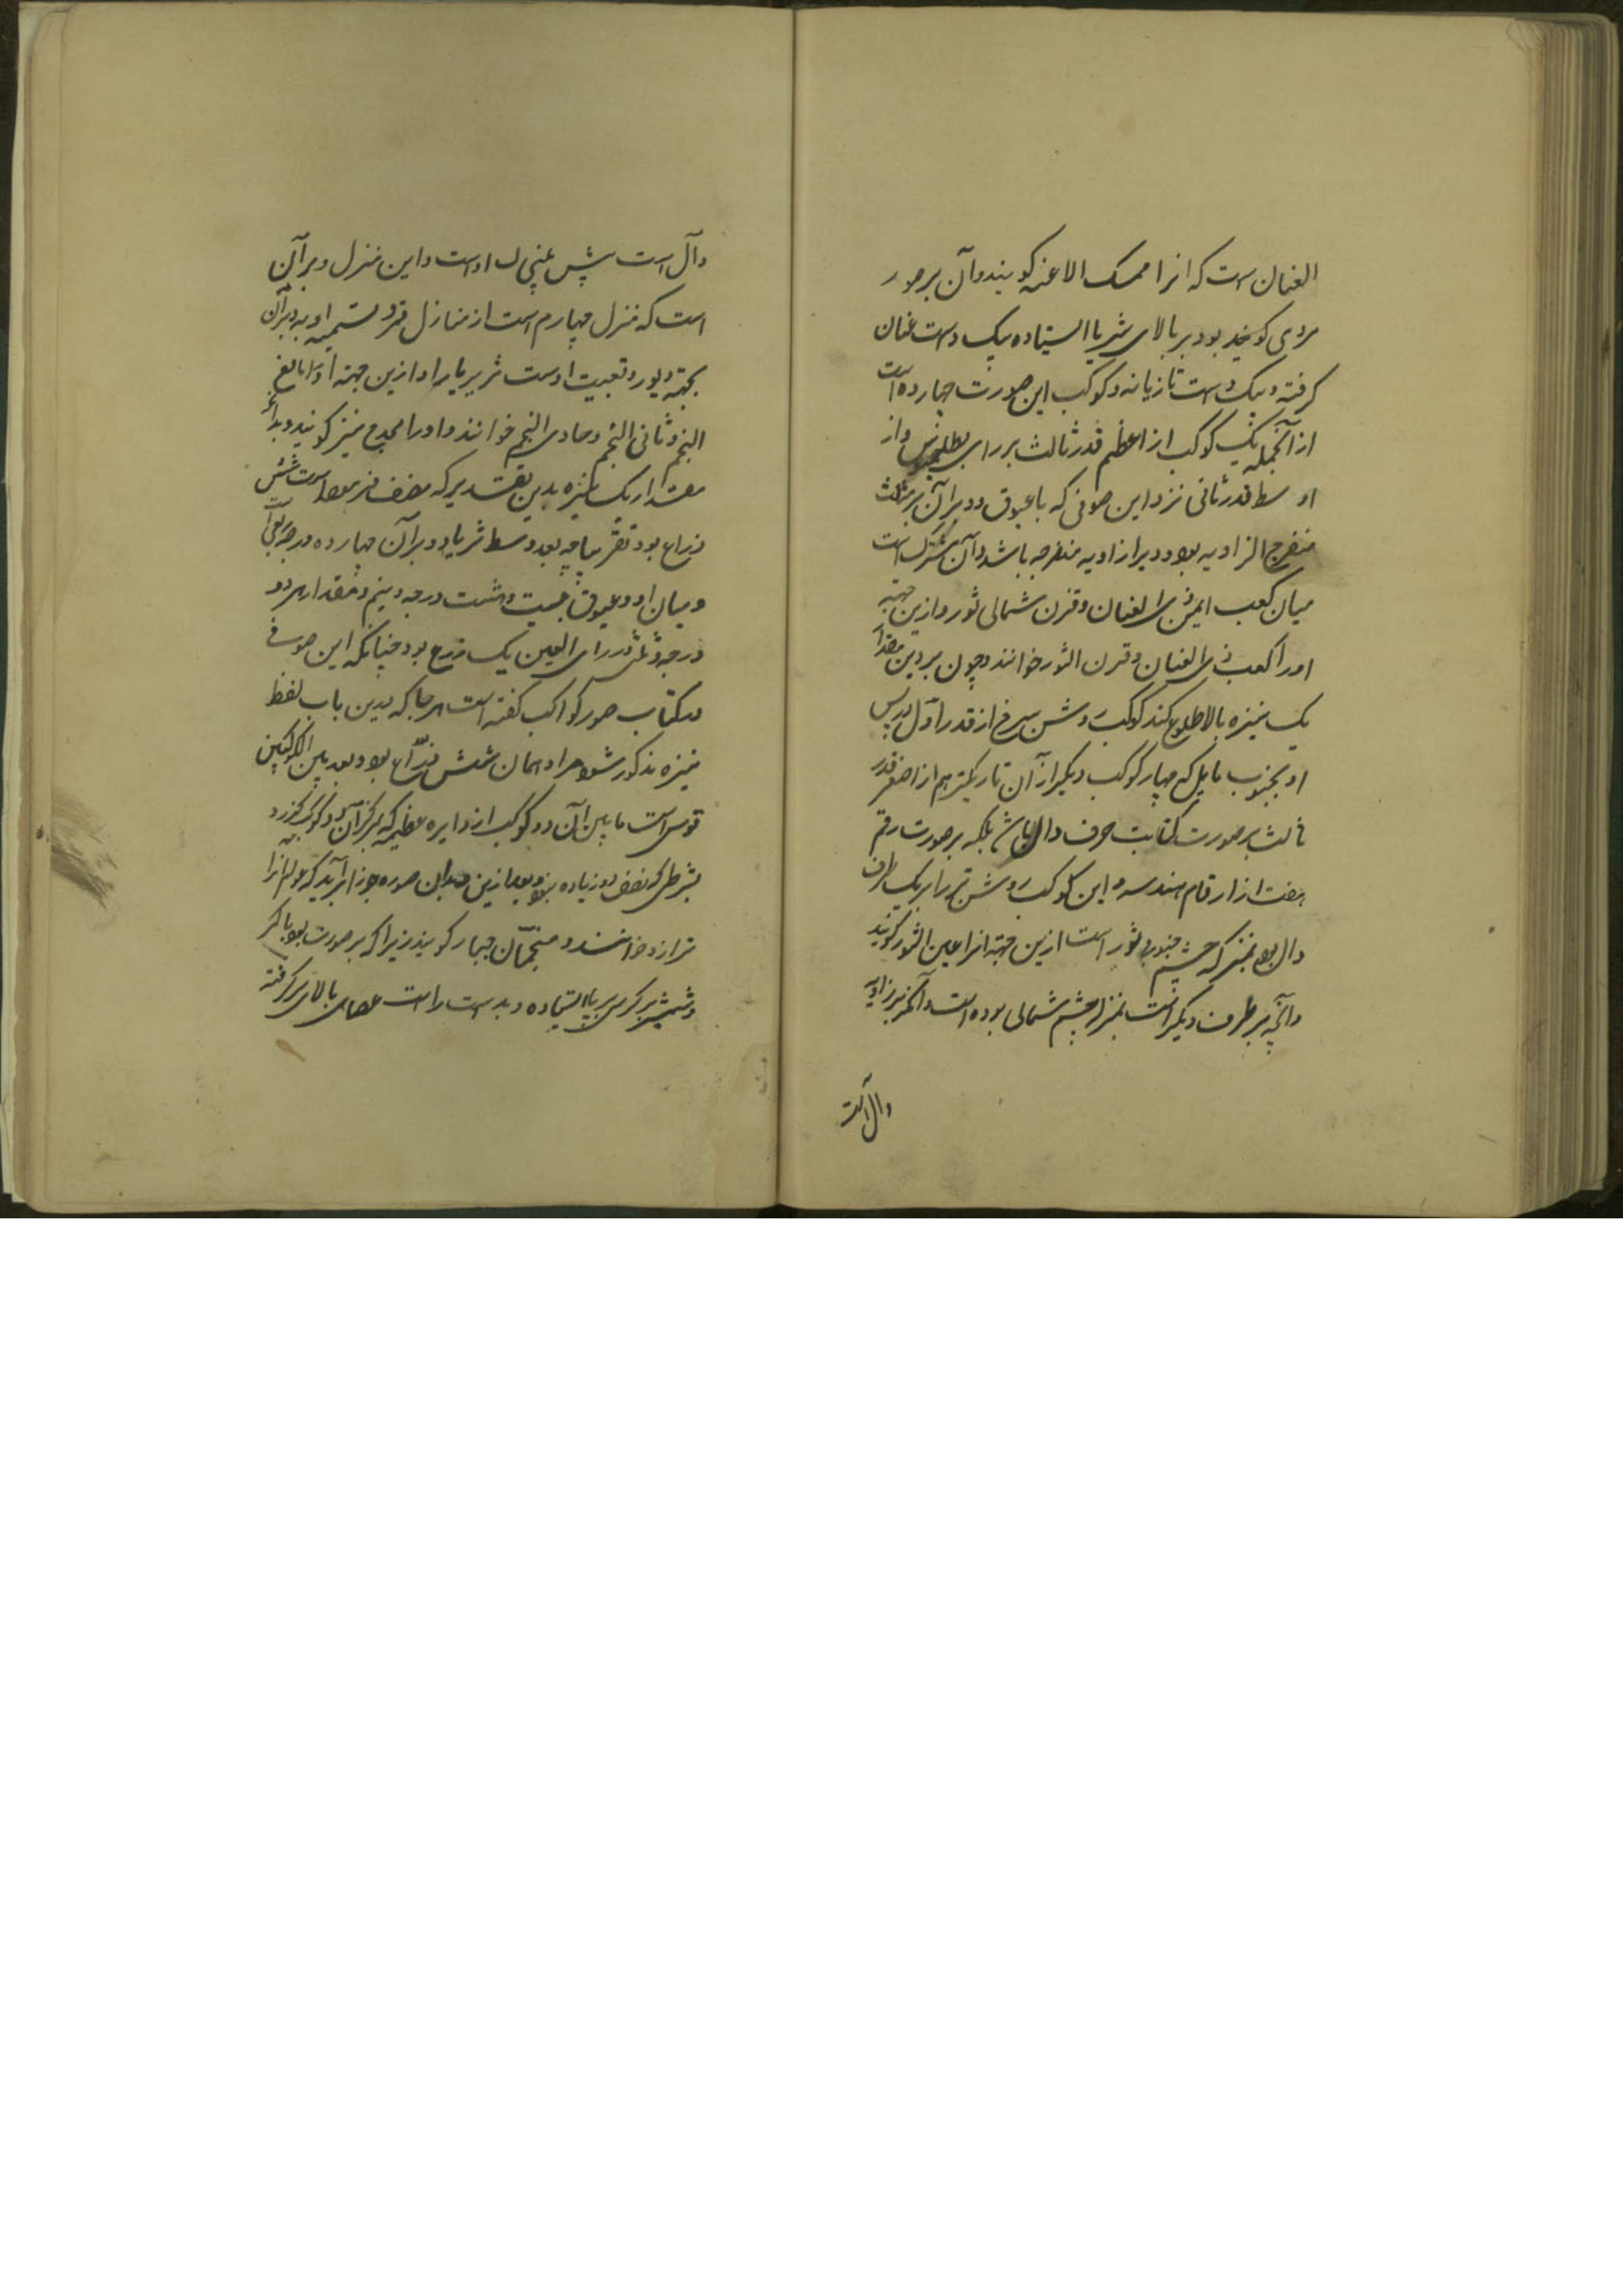 العنان است که انرا ممسک الاعنه کویند و آن بر صور
مردی کویند بود بر بالای ثریا ایستاده بیک دست عنان
کرفته و بیک دست تازیانه و کوکب این صورت چهارده است
از آنجمله یک کوکب از اعظم قدر ثالث بر رای بطلمیوس و از
اوسط قدر ثانی نزد ابن صوفی که با عیوق و دبران بر مثلث
منفرج الزاویه بود و دبر از زاویه منفرجه باشد و آن مشترک است
میان کعب ایمن ذی العنان و قرن شمالی ثور و ازین جهته
اورا کعب ذی العنان و قرن الثور خوانند و چون بر دین مقدا
یک نیزه بالا طلوع کند کوکب روشن سرخ از قدر اول در پس
او بجنوب مایل که چهار کوکب دیکر از آن تاریکتر هم از اصغر قدر
ثالث بر صورت کتابت حرف دال باشد بلکه بر صورت رقم
هفت از ارقام هندسه و این کوکب روشن تر را بر یک طرف
دال بود بمنزله چشم جنوبی ثور است ازین جهته انرا عین الثور کویند
و آنچه بر طرف دیکر است بمنزله چشم شمالی بوده است و آنکه بر زاویه
دال است
دال است پس او است و این منزل دبران
است که منزل چهارم است از منازل قمر و تسمیه او به دبران
بجهته و تبعیت اوست ثریا را و ازین جهته او را تابع
النجم و ثانی النجم و حادی النجم خوانند و اورا مجدح نیز کویند و بعد
مقدار یک نیزه بدین تقدیر که است شش
ذراع بود تقریبا چه بعد وسط ثریا و دبران چهارده درجه
و میان او و عیوق بیست و هشت درجه و نیم و مقدار هر دو
درجه و ثلثی در رای العین یک ذرع بود چنانکه ابن صوفی
در کتاب صور کواکب کفته است هر جا که درین باب لفظ
نیزه مذکور شود مراد همان شش ذراع بود و بعد بین الکوکبین
قوس است مابین آن دو کوکب از دایره عظیمه که بمرکز آن دو کوکب کذرد
بشرطی که نصف دور زیاده نبود و بعد ازین صوره جوزا برآید که عوام انرا
ترازو خوانند و منجمان جبار کویند زیرا که بر صورت با کمر
و شمشیر بر کرسی بر پا ایستاده و بدست راست عصای بالای سر کرفته